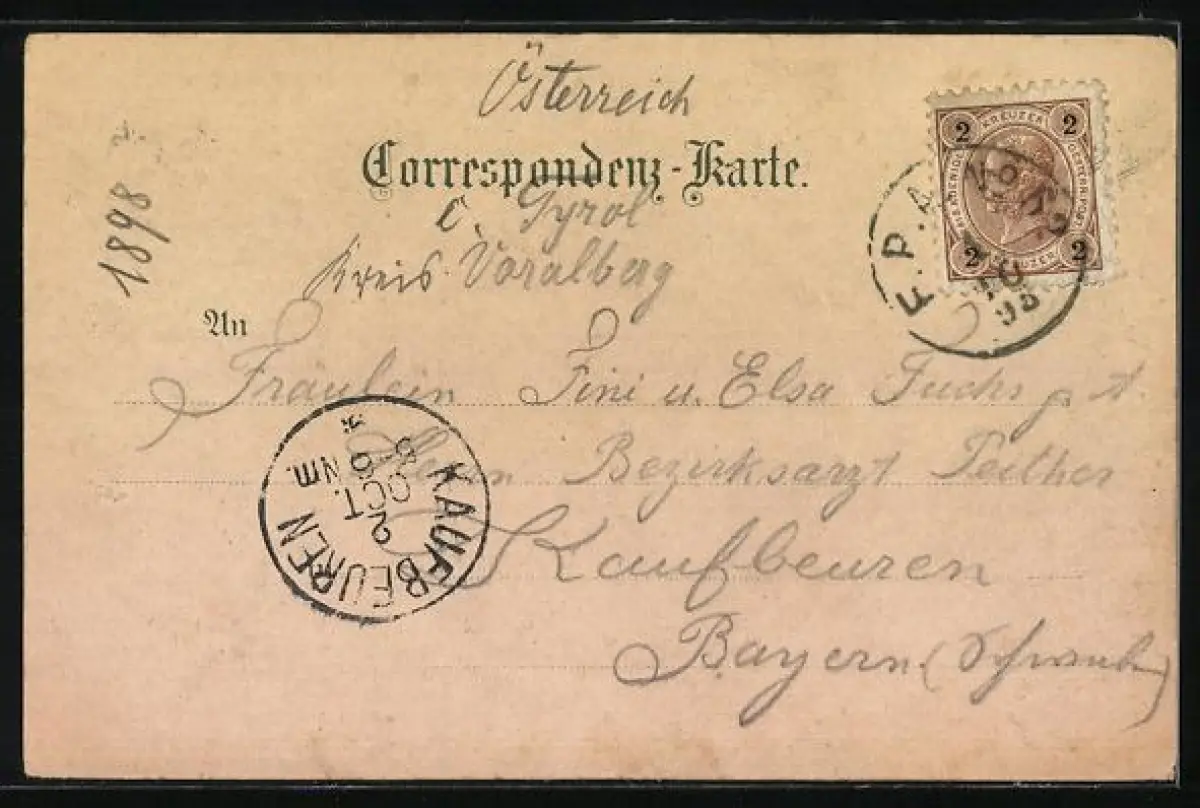 Österreich
Correspondenz-Karte.
Tyrol
Kreis Voralberg
1898
2 KREUZER 2
2 KREUZER 2
F.P.A. No
10
98
An
Fräulein Fini u. Elsa Fuchs
Herrn Bezirksarzt
Kaufbeuren
Bayern (Schwaben)
KAUFBEUREN
2 OCT. 98
NM.